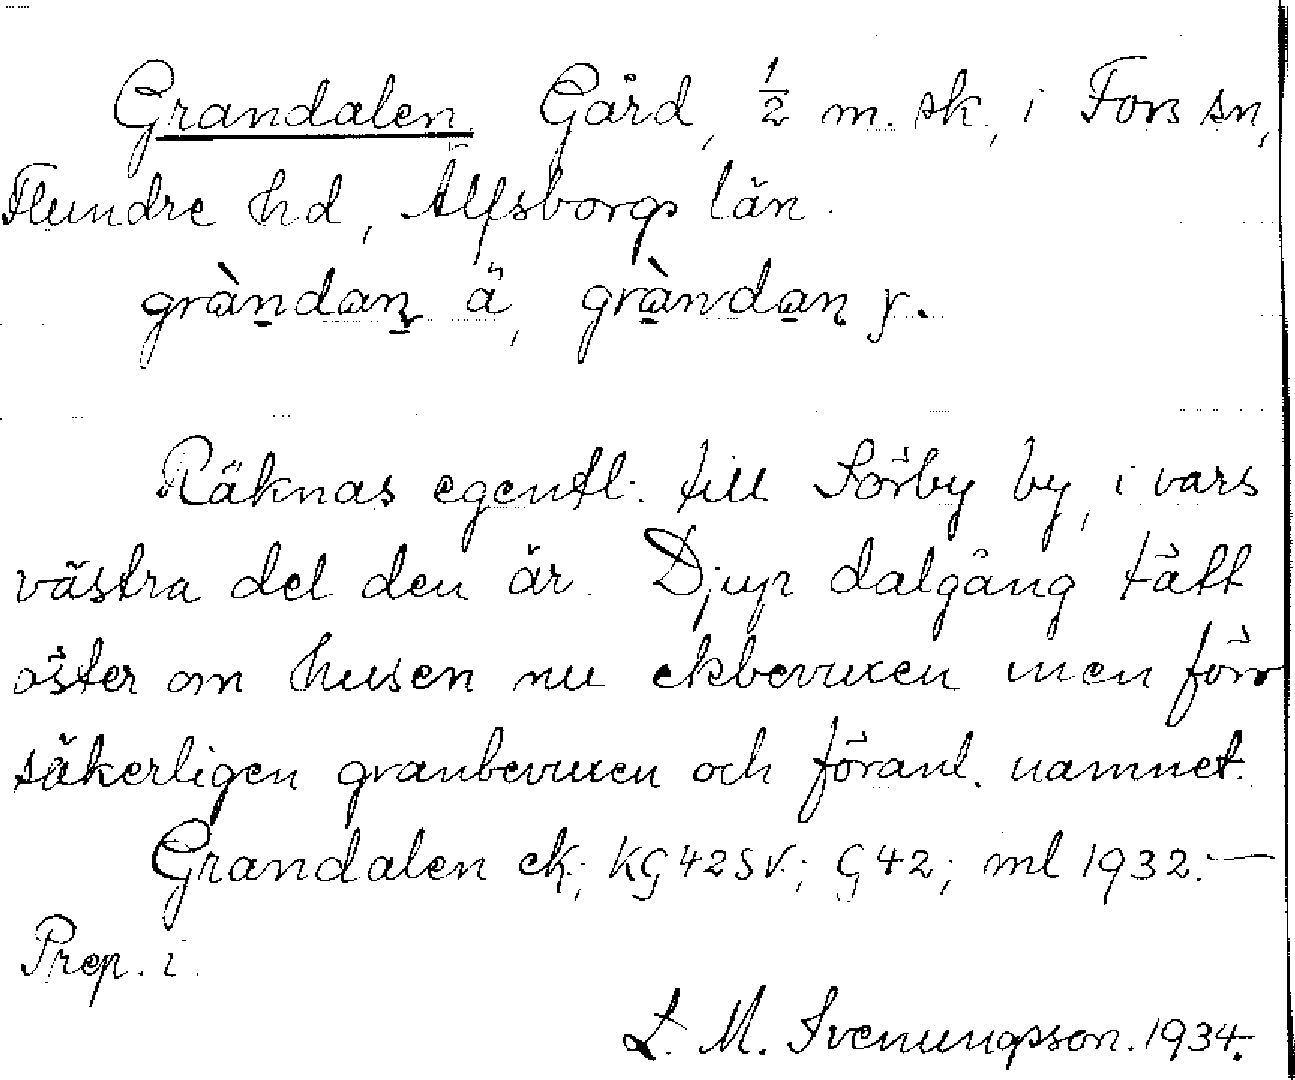 Grandalen Gård, ½ m. sk., i Fors sn,
Flundre hd, Älfsborgs län.
gràndan ä, gràndan y.
Räknas egentl. till Sörby by, i vars
västra del den är. Djup dalgång tätt
öster om husen nu ekbevuxen men förr
säkerligen granbevuxen och föranl. namnet.
Grandalen ek; KG42SV; G42; ml 1932.—
Prep. i.
L. M. Svenungsson. 1934.